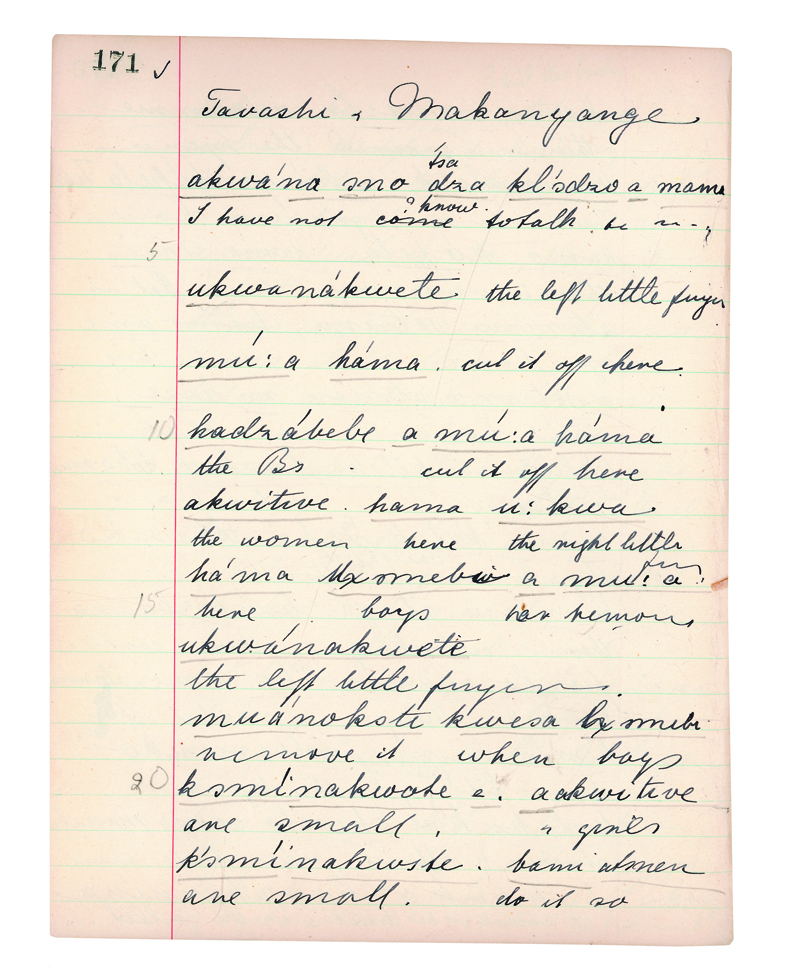 171 ✓
Tavashi & Makanyange
tsa
akwá'na sno dza kĺsdzo a mama
? know
I have not come to talk
5
ukwanákwete the left little finger
mú:a háma . cut it off here.
10 hadzábebe a mú:a háma
the Bs . cut it off here
akwitive . hama u: kwa
the women here the right little
há'ma a mu:a
15 here . boys
ukwánakwete
the left little finger.
muánokste kwesa
remove it when boys
20 ksmínakwobe a . aakwitive
are small . & girls
k'smínakwste . bami atmen
are small . do it so